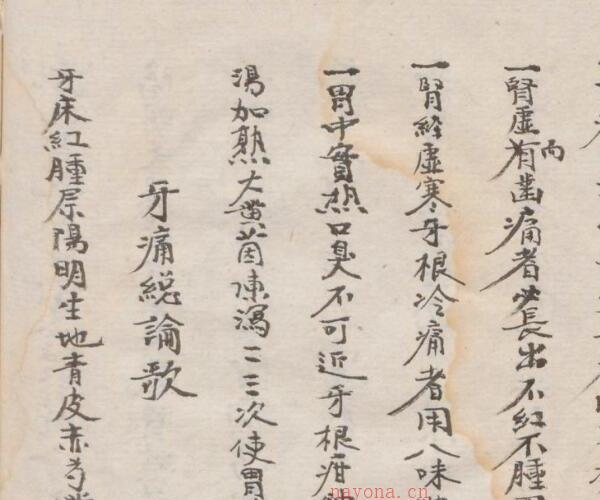 一腎虛而有齒痛者必長出不紅不腫
一腎經虛寒牙根冷痛者用八味
一胃中實熱口臭不可近牙根疳
湯加熟大黃茵陳瀉二三次使胃
牙痛總論歌
牙床紅腫屬陽明生地青皮赤芍
nayona.cn